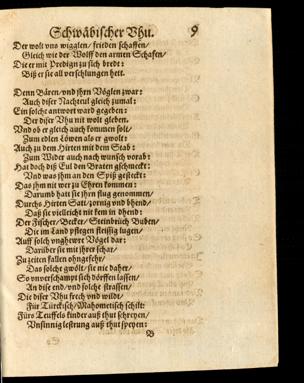 Schwäbischer Vhu. 9
Der wolt vns wigglen/ frieden schaffen/
Gleich wie der Wolff den armen Schafen/
Die er mit Predign zu sich bredt:
Biß er sie all verschlungen hett.
Denn Bären/ vnd jhrn Vöglen zwar:
Auch diser Nachteul gleich zumal:
Ein solche antwort ward gegeben:
Der diser Vhu nit wolt gleben.
Vnd ob er gleich auch kommen solt/
Zum edlen Löwen als er gwolt:
Auch zu dem Hirten mit dem Stab:
Zum Wider auch nach wunsch vorab:
Hat doch diß Eul den Braten gschmeckt:
Vnd was jhm an den Spiß gesteckt:
Das jhm nit wer zu Ehren kommen:
Darumb hatt sie jhrn flug genommen/
Durchs Hirten Satt/ zornig vnd bhend/
Daß sie vielleicht nit kem in dhend:
Der Fischer/ Becker/ Steinbrüch Buben/
Die im Land pflegen fleissig lugen/
Auff solch vnghewre Vögel dar:
Darüber sie mit jhrer schar/
Zu zeiten fallen ohngefehr/
Das solcht gwölt/ sie nie daher/
So vnverschampt sich dörffen lassen/
An dise end/ vnd solche strassen/
Die diser Vhu frech vnd wildt/
Für Türckisch/ Mahometisch schilt:
Fürs Teuffels finder auß thut schreyen/
Vnsinnig lestrung auß thut speyen:
B